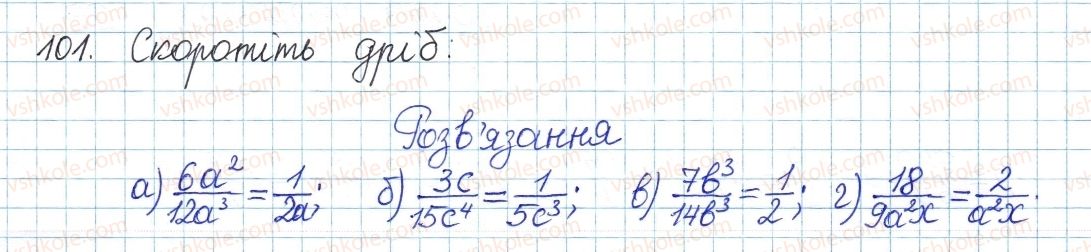 101. Скоротіть дріб:
Розв'язання
а) 6a²/12a³ = 1/2a; б) 3c/15c⁴ = 1/5c³; в) 7b³/14b³ = 1/2; г) 18/9a²x = 2/a²x.
vshkole.com